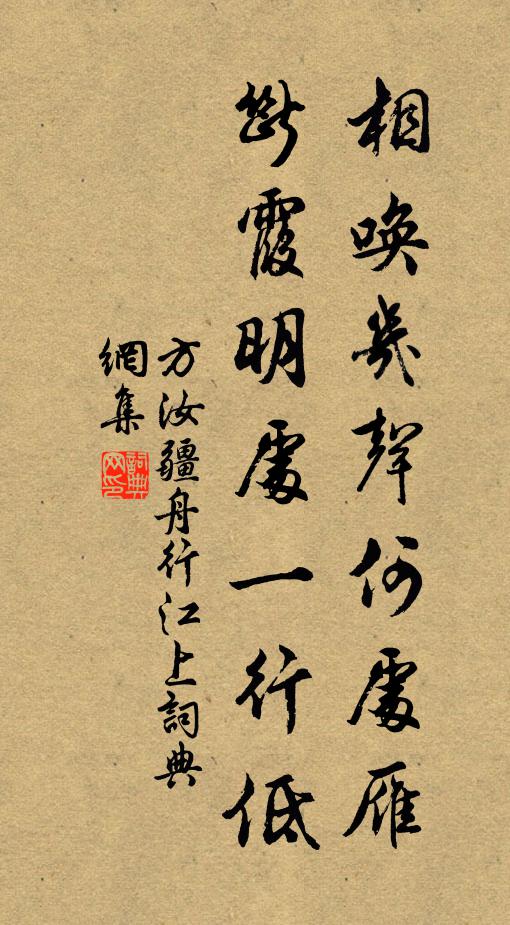 相喚幾聲何處雁
斷霞明處一行低
方汝疆舟行江上詞典
網集
詞典網印